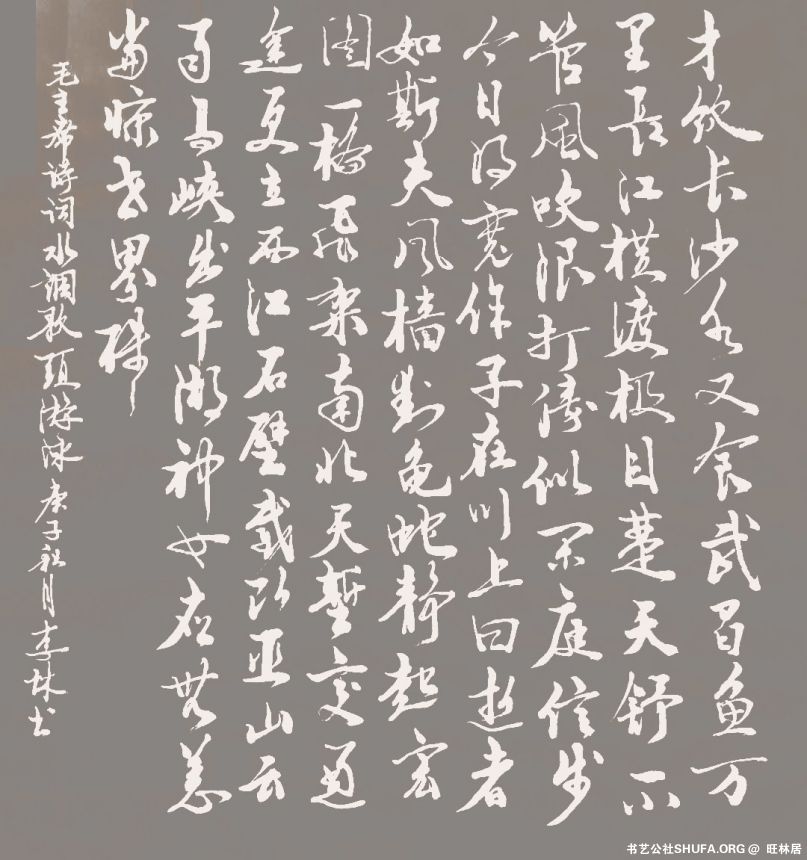 才饮长沙水又食武昌鱼万
里長江横渡极目楚天舒不
管風吹浪打勝似闲庭信步
今日得宽馀子在川上曰逝者
如斯夫风樯动龟蛇静起宏
图一桥飞架南北天堑变通
途更立西江石壁截断巫山云
雨高峡出平湖神女应無恙
當惊世界殊
毛主席诗词水调歌头游泳庚子秋月李林书
书艺公社SHUFA.ORG @ 旺林居